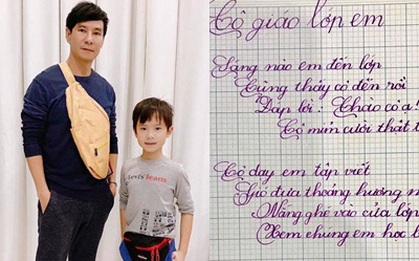 Cô giáo lớp em
Sáng nào em đến lớp
Cũng thấy cô đến rồi
Đáp lời: Chào cô ạ!
Cô mỉm cười thật
Cô dạy em tập viết
Gió đưa thoảng hương
Nắng ghé vào cửa lớp
Xem chúng em học
Levi's Team